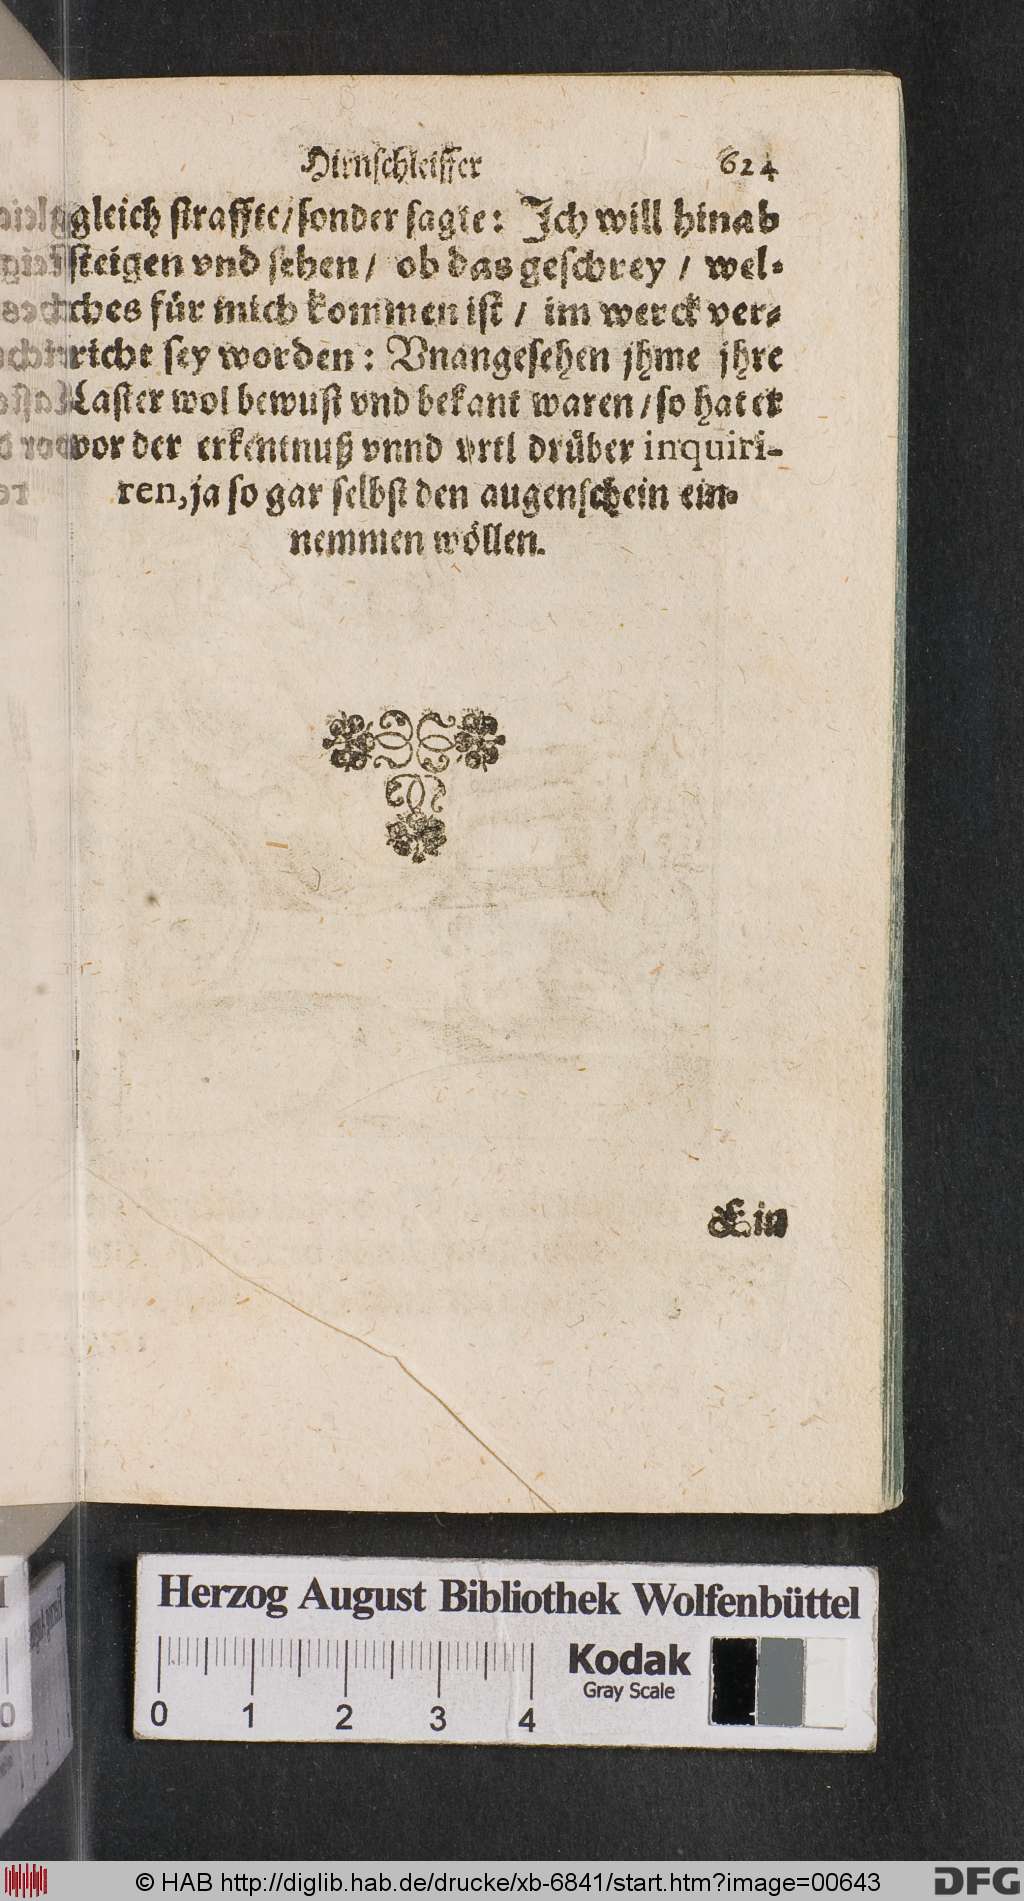 Hirnschleiffer 624
gleich straffte/sonder sagte: Ich will hinab
steigen vnd sehen/ ob das geschrey / wel-
ches für mich kommen ist / im werck ver-
richt sey worden: Vnangesehen jhme jhre
Laster wol bewust vnd bekant waren/so hat er
vor der erkentnuß vnnd vrtl drüber inquiri-
ren, ja so gar selbst den augenschein ein-
nemmen wöllen.
Ein
Herzog August Bibliothek Wolfenbüttel
Kodak
Gray Scale
0 1 2 3 4
© HAB http://diglib.hab.de/drucke/xb-6841/start.htm?image=00643
DFG